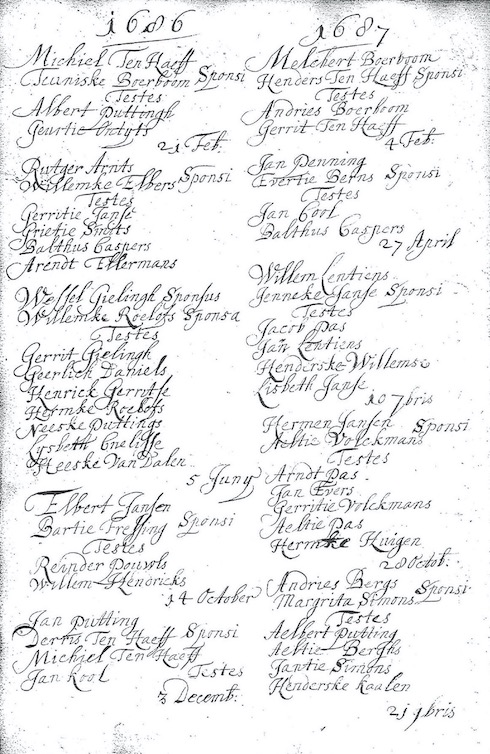 1686
Michiel Ten Haeff
Teuniske Boerboom Sponsi
Testes
Albert Puttingh
Geurtie Ontyts
21 Feb:
Rutger Arnts
Willemke Elbers Sponsi
Testes
Gerritie Janse
Grietie Smits
Balthus Caspers
Arendt Ellermans
Wessel Gielingh Sponsus
Willemke Roelofs Sponsa
Testes
Gerrit Gielingh
Geerlich Daniels
Henrick Gerritse
Hermke Roelofs
Neeske Puttings
Lysbeth Cnelisse
Heeske Van Dalen
5 Juny
Elbert Jansen
Bartie Fressing Sponsi
Testes
Reinder Pouwls
Willem Hendricks
14 October
Jan Putting
Derris Ten Haeff Sponsi
Michiel Ten Haeff
Jan Kool Testes
3 Decemb:
1687
Melchert Boerboom
Henders Ten Haeff Sponsi
Testes
Andries Boerboom
Gerrit Ten Haeff
4 Feb:
Jan Penning
Evertie Berns Sponsi
Testes
Jan Cool
Balthus Caspers
27 April
Willem Lentiens
Jenneke Janse Sponsi
Testes
Jacob Das
Jan Lentiens
Henderske Willemse
Lisbeth Janse
10 7bris
Hermen Jansen Sponsi
Aeltie Volckmans
Testes
Arndt Das
Jan Evers
Gerritie Volckmans
Aeltie Das
Hermke Huigen
28 Octob:
Andries Bergs
Margrita Simons Sponsi
Testes
Aelbert Putting
Aeltie Berghs
Jantie Simons
Henderske Kaalen
21 9bris